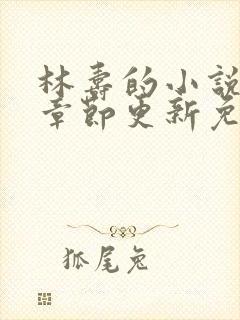 林壽的小說
章節更新免
狐尾兔